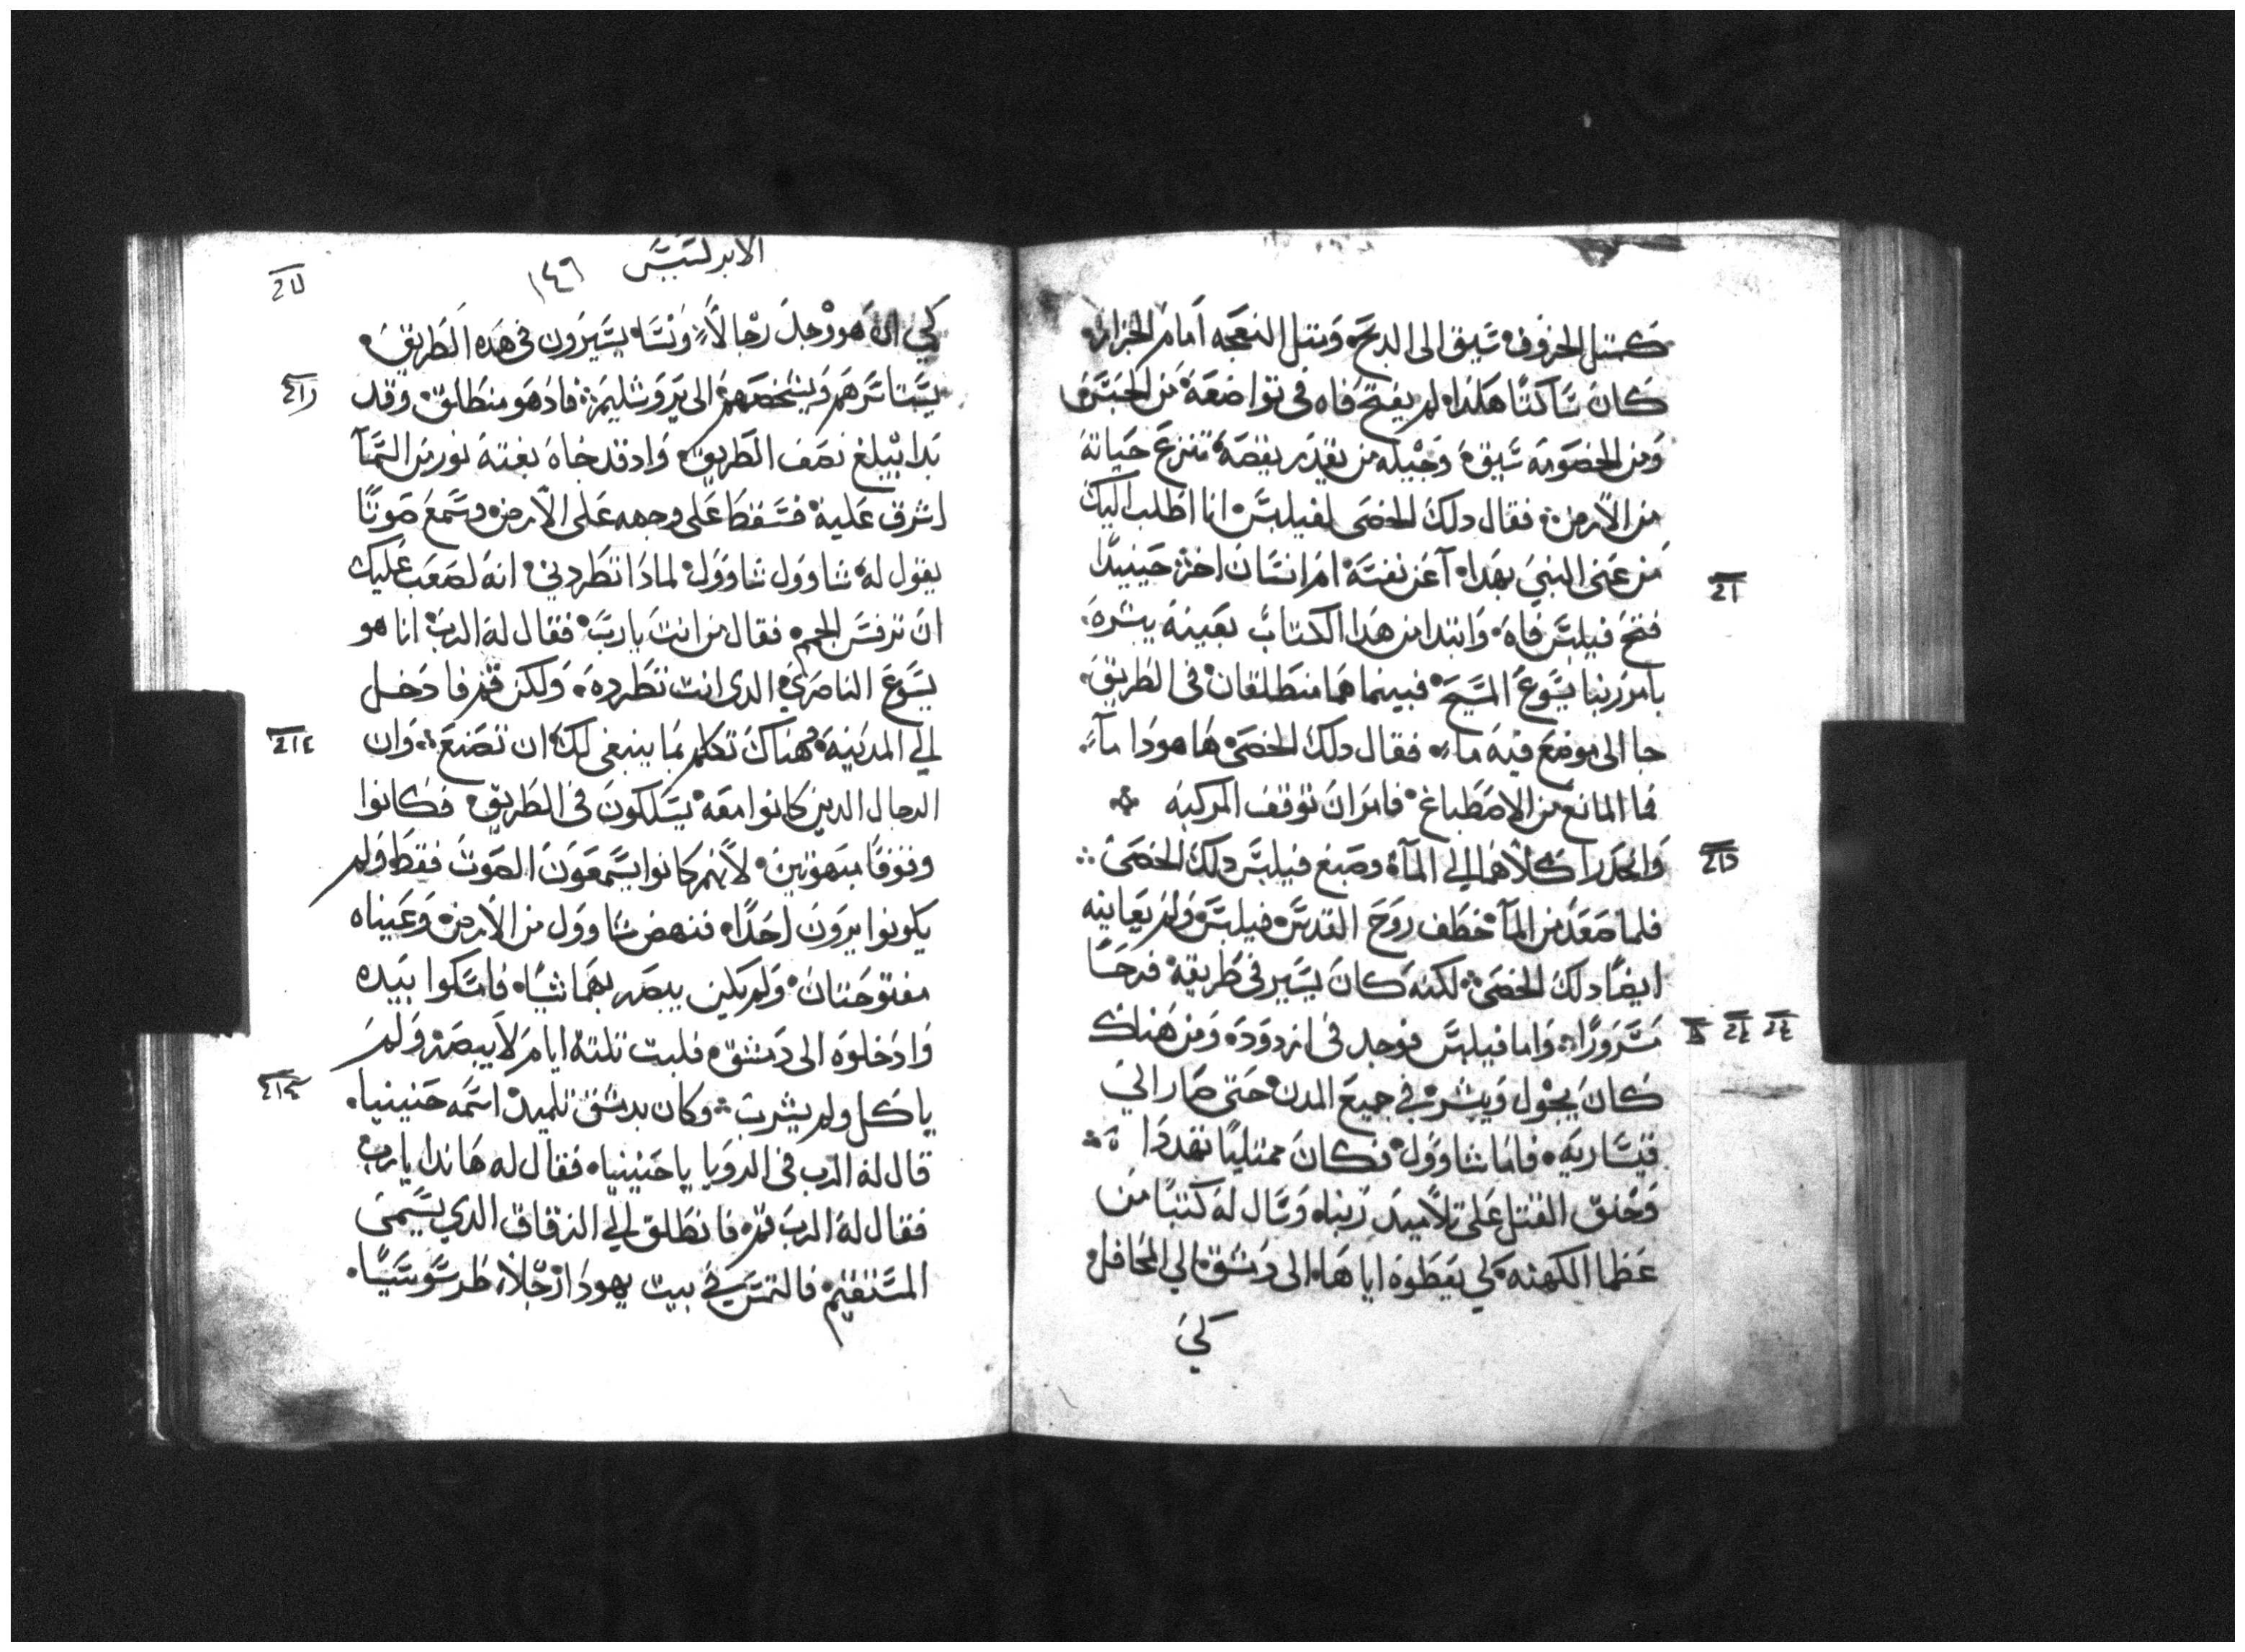 كمتل الخروف سيق الى الدبح ومتل النعجه امام الجزاز
كان ساكتا هكذا لم يفتح فاه في تواضعه من الحبس
ومن الخصومه سيق وجيله من يقدر يقصه تنزع حياته
من الارض فقال دلك الخصى لفيلبس انا اطلب اليك
من عنى النبي بهدا آعن نفسه ام انسان اخر حينيدا
فتح فيلبس فاه وابتدا من هدا الكتاب بعينه يبشره
بامر ربنا يسوع المسيح فبينما هما منطلقان في الطريق
جا الى موضع فيه ماء فقال دلك الخصى ها هودا مآء
فما المانع من الاصطباغ فامر ان توقف المركبه
وانحدرا كلاهما الي المآء وصبغ فيلبس دلك الخصى
فلما صعد من المآ خطف روح القدس فيلبس ولم يعاينه
ايضا دلك الخصى لكنه كان يسير في طريقه فرحا
مسرورا واما فيلبس فوجد في ازدودة ومن هناك
كان يجول ويبشر في جميع المدن حتى صار الي
قيساريه فاما شاوول فكان ممتليا تهددا
وخنق القتل على تلاميد ربنا وسال له كتبا من
عظما الكهنه لكي يعطوه اياها الى دمشق الي المحافل
لكي
الابركسيس ١٤٦
لكي ان هو وجد رجالا ونسا يسيرون في هده الطريق
يستاسرهم ويشخصهم الى يروشليم فاد هو منطلق وقد
بدا يبلغ نصف الطريق واد قد جاه بغته نور من السمآ
اشرق عليه فسقط على وجهه على الارض وسمع صوتا
يقول له شاوول شاوول لمادا تطردني انه لصعب عليك
ان ترفس الجم فقال من انت يارب فقال له الرب انا هو
يسوع الناصري الدى انت تطرده ولكن قم فادخل
الي المدينه وهناك تكلم بما ينبغى لك ان تصنع وان
الرجال الدين كانوا معه يسلكون في الطريق فكانوا
وقوفا مبهوتين لانهم كانوا يسمعون الصوت فقط ولم
يكونوا يرون احدا فنهض شاوول من الارض وعيناه
مفتوحتان ولم يكن يبصر بهما شيا فامسكوا بيده
وادخلوه الى دمشق فلبت تلتة ايام لا يبصر ولم
ياكل ولم يشرب وكان بدمشق تلميد اسمه حنينيا
قال له الرب في الرويا يا حنينيا فقال له هاندا يارب
فقال له الرب قم فانطلق الي الزقاق الدي يسمى
المستقيم فالتمس في بيت يهودا رجلا طرسوسيا